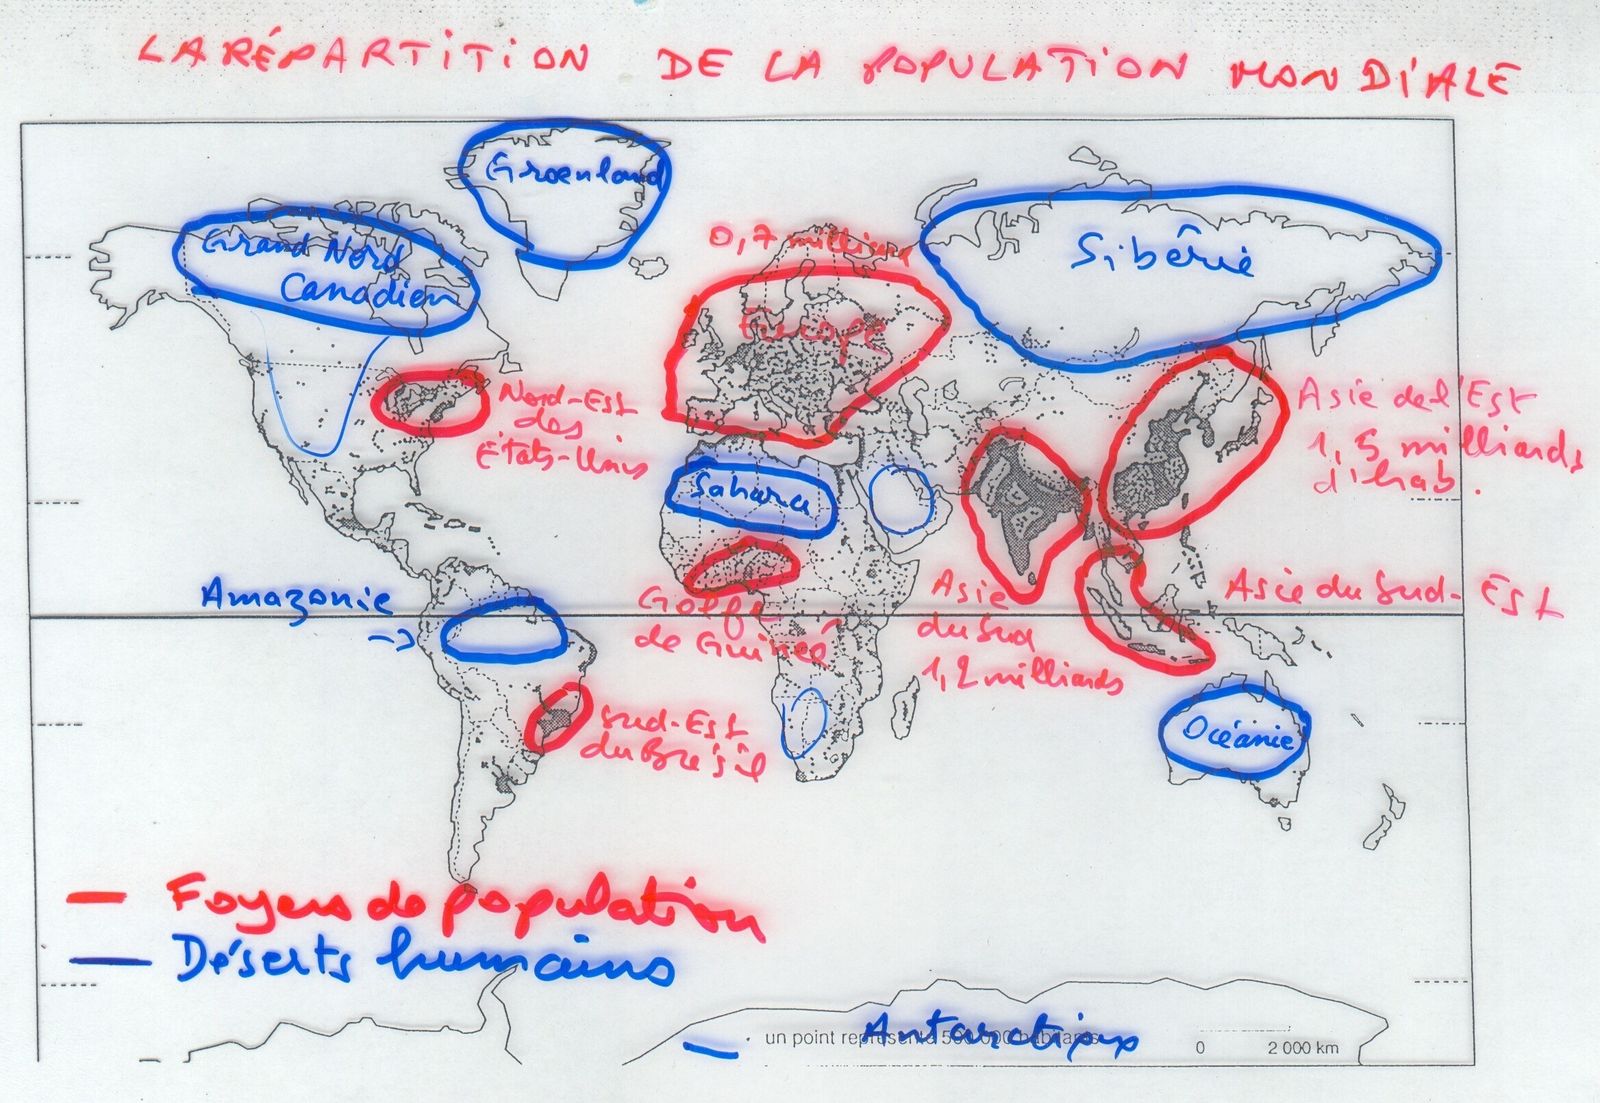 LA RÉPARTITION DE LA POPULATION MONDIALE
Groenland
Grand Nord
Canadien
0,7 milliard
Sibêrie
Europe
Nord-Est
des
États-Unis
Asie de l'Est
1,5 milliards
d'hab.
Sahara
Amazonie
→
Golfe
de Guinée
Asie
du Sud
1,2 milliards
Asie du Sud-Est
Sud-Est
du Brésil
Océanie
Foyers de population
Déserts humains
Antarctique
un point représente 500 000 habitants
0 2 000 km